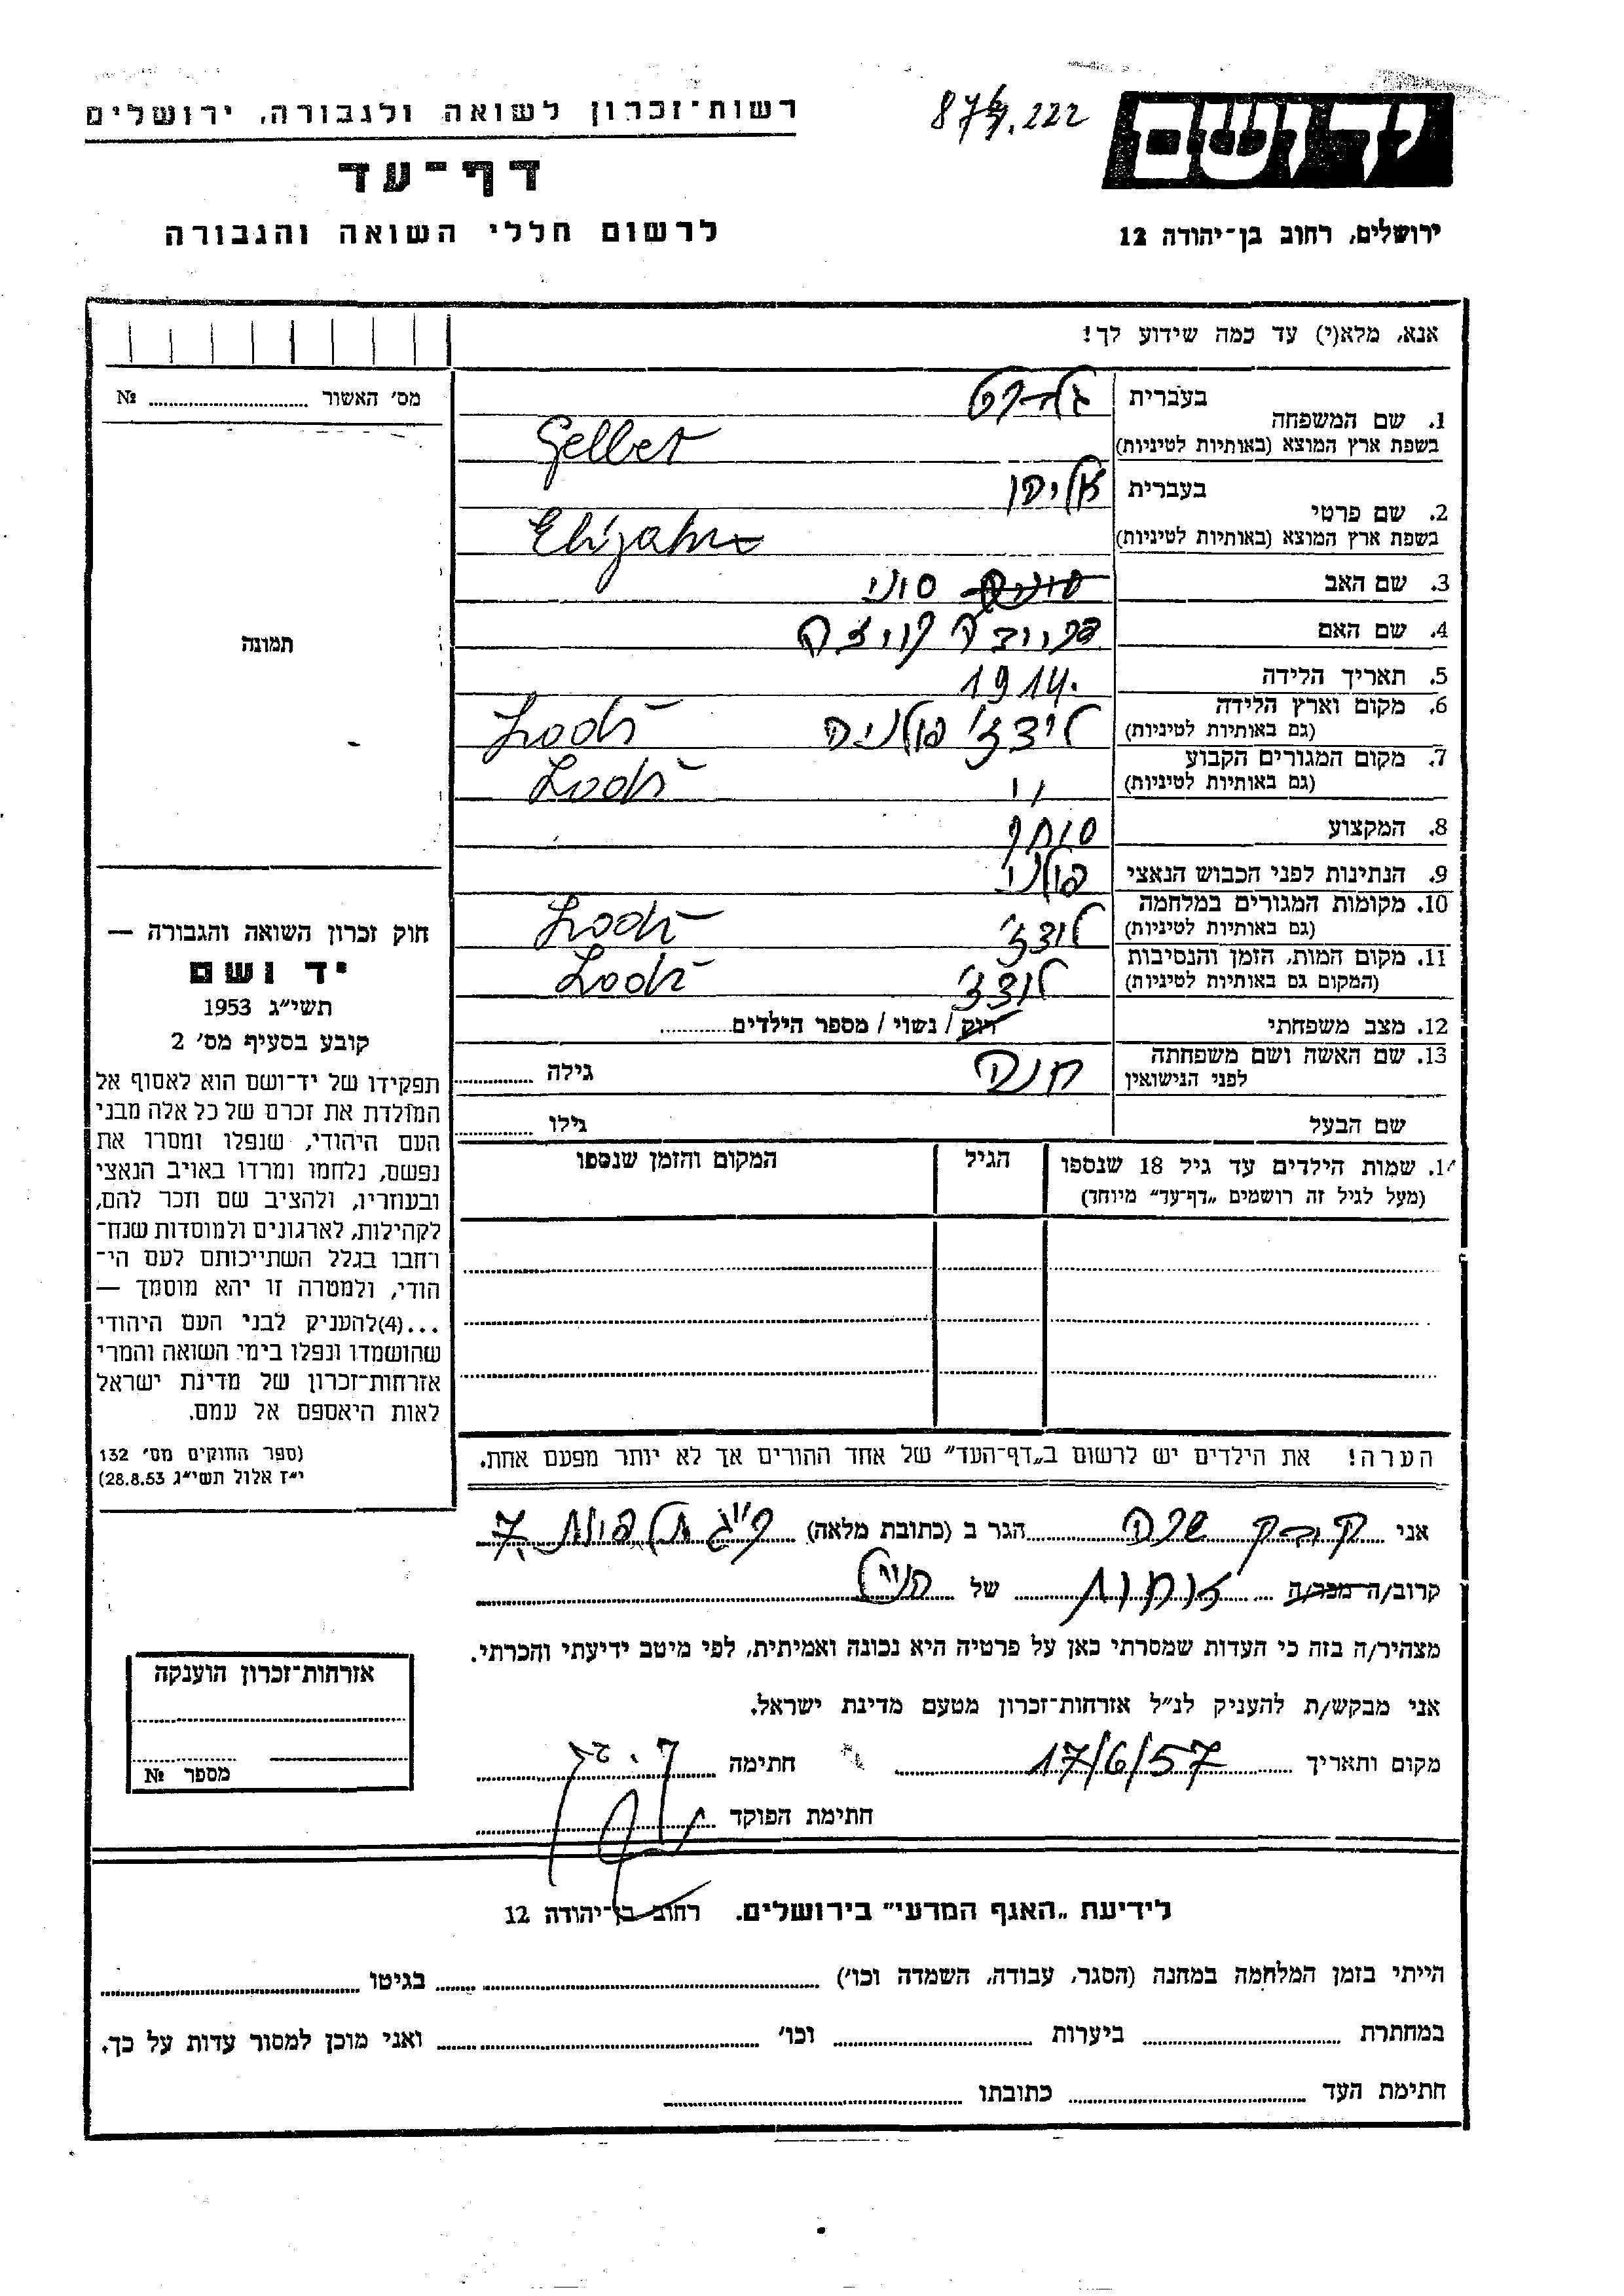 רשות־זכרון לשואה ולגבורה, ירושלים
דף־עד
לרשום חללי השואה והגבורה
222
יד ושם
ירושלים, רחוב בן־יהודה 12
אנא, מלא(י) עד כמה שידוע לך!
מס׳ האשור № 
1. שם המשפחה
בעברית
בשפת ארץ המוצא (באותיות לטיניות) Gelbet
2. שם פרטי
בעברית
בשפת ארץ המוצא (באותיות לטיניות) Elijahu
3. שם האב
4. שם האם
5. תאריך הלידה 1914.
6. מקום וארץ הלידה לודז׳ פולניה Lodz
(גם באותיות לטיניות)
7. מקום המגורים הקבוע ״ Lodz
(גם באותיות לטיניות)
8. המקצוע סוחר
9. הנתינות לפני הכבוש הנאצי פולני
10. מקומות המגורים במלחמה לודז׳ Lodz
(גם באותיות לטיניות)
11. מקום המות, הזמן והנסיבות לודז׳ Lodz
(המקום גם באותיות לטיניות)
12. מצב משפחתי רווק / נשוי / מספר הילדים
13. שם האשה ושם משפחתה
לפני הנישואין חנה גילה
שם הבעל גילו
14. שמות הילדים עד גיל 18 שנספו
(מעל לגיל זה רושמים „דף־עד״ מיוחד)
הגיל
המקום והזמן שנספו
הערה! את הילדים יש לרשום ב„דף־העד״ של אחד ההורים אך לא יותר מפעם אחת.
תמונה
חוק זכרון השואה והגבורה —
יד ושם
תשי״ג 1953
קובע בסעיף מס׳ 2
תפקידו של יד־ושם הוא לאסוף אל
המולדת את זכרם של כל אלה מבני
העם היהודי, שנפלו ומסרו את
נפשם, נלחמו ומרדו באויב הנאצי
ובעוזריו, ולהציב שם וזכר להם,
לקהילות, לארגונים ולמוסדות שנח־
רבו בגלל השתייכותם לעם הי־
הודי, ולמטרה זו יהא מוסמך —
...(4)להעניק לבני העם היהודי
שהושמדו ונפלו בימי השואה והמרי
אזרחות־זכרון של מדינת ישראל
לאות היאספם אל עמם.
(ספר החוקים מס׳ 132
י״ז אלול תשי״ג 28.8.53)
אני שרה הגר ב (כתובת מלאה) 7
קרוב/ה מכר/ה אחות של הנ״ל
מצהיר/ה בזה כי העדות שמסרתי כאן על פרטיה היא נכונה ואמיתית, לפי מיטב ידיעתי והכרתי.
אני מבקש/ת להעניק לנ״ל אזרחות־זכרון מטעם מדינת ישראל.
מקום ותאריך 17/6/57 חתימה
חתימת הפוקד
אזרחות־זכרון הוענקה
מספר №
לידיעת „האגף המדעי״ בירושלים. רחוב בן־יהודה 12
הייתי בזמן המלחמה במחנה (הסגר, עבודה, השמדה וכו׳) בגיטו
במחתרת ביערות וכו׳ ואני מוכן למסור עדות על כך.
חתימת העד כתובתו